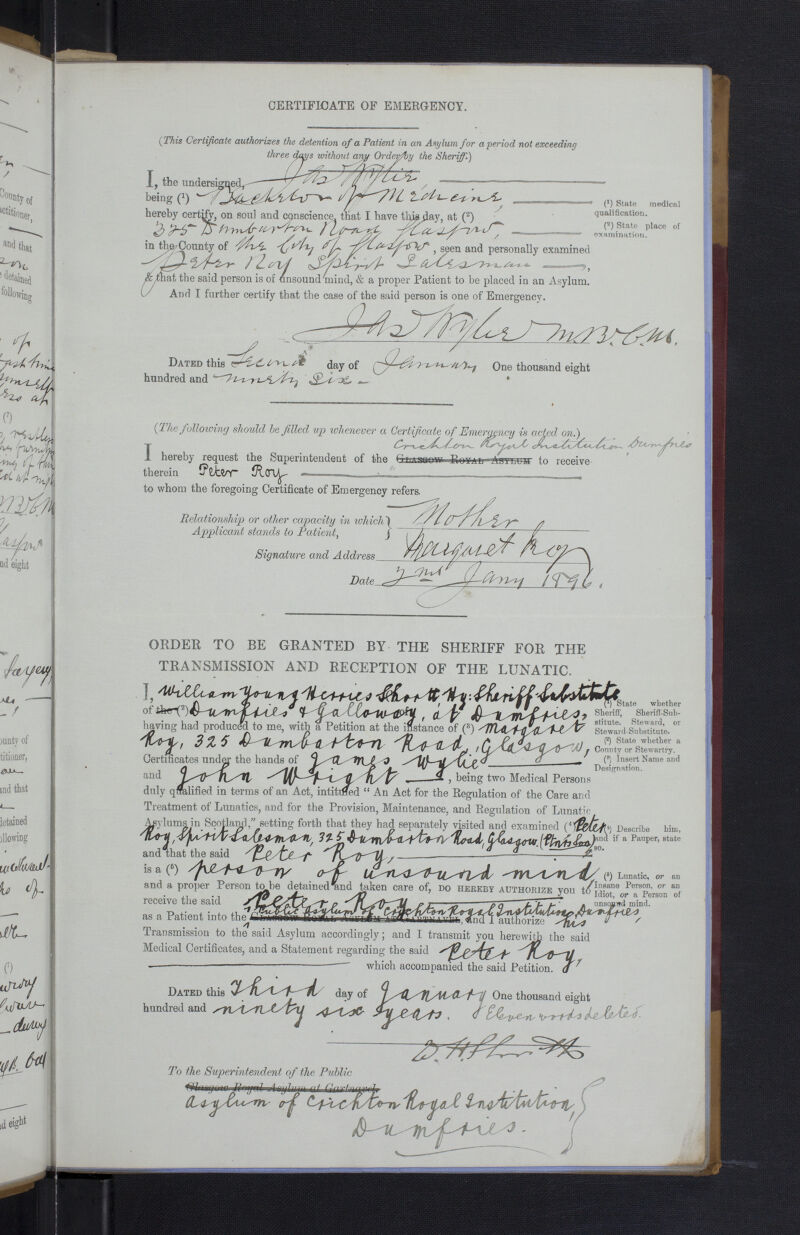 CERTIFICATE OF EMERGENCY.
(This Certificate authorizes the detention of a Patient in an Asylum for a period not exceeding
three days without any Order by the Sheriff.)
I, the undersigned, Jas Wylie,
being (¹) Bachelor of Medicine,
(¹) State medical
qualification.
hereby certify, on soul and conscience, that I have this day, at (²)
325 Dumbarton Road Glasgow,
(²) State place of
examination.
in the County of the City of Glasgow, seen and personally examined
Peter Roy Spirit Salesman,
& that the said person is of unsound mind, & a proper Patient to be placed in an Asylum.
And I further certify that the case of the said person is one of Emergency.
Jas Wylie M.B.C.M.
DATED this Second day of January One thousand eight
hundred and ninety six
(The following should be filled up whenever a Certificate of Emergency is acted on.)
Crichton Royal Institution Dumfries
I hereby request the Superintendent of the GLASGOW ROYAL ASYLUM to receive
therein Peter Roy
to whom the foregoing Certificate of Emergency refers.
Relationship or other capacity in which } Mother
Applicant stands to Patient,
Signature and Address Margaret Roy
Date 2nd Jany 1896.
ORDER TO BE GRANTED BY THE SHERIFF FOR THE
TRANSMISSION AND RECEPTION OF THE LUNATIC.
I, William Young Herries Shortt, Hy: Sheriff Substitute
of the (¹) Dumfries & Galloway, at Dumfries,
(¹) State whether
Sheriff, Sheriff-Sub-
stitute, Steward, or
Steward-Substitute.
having had produced to me, with a Petition at the instance of (³) Margaret
Roy, 325 Dumbarton Road, Glasgow,
(²) State whether a
County or Stewartry.
Certificates under the hands of James Wylie
(³) Insert Name and
Designation.
and John Wright, being two Medical Persons
duly qualified in terms of an Act, intituled "An Act for the Regulation of the Care and
Treatment of Lunatics, and for the Provision, Maintenance, and Regulation of Lunatic
Asylums in Scotland," setting forth that they had separately visited and examined (⁴ Peter
Roy, Spirit Salesman, 325 Dumbarton Road, Glasgow.
(⁴) Describe him,
and if a Pauper, state
so.
and that the said Peter Roy,
is a (⁵) person of unsound mind
(⁵) Lunatic, or an
Insane Person, or an
Idiot, or a Person of
unsound mind.
and a proper Person to be detained and taken care of, DO HEREBY AUTHORIZE you to
receive the said Peter Roy
Public Asylum of Crichton Royal Institution, Dumfries,
as a Patient into the GLASGOW ROYAL ASYLUM AT GARTNAVEL and I authorize his
Transmission to the said Asylum accordingly; and I transmit you herewith the said
Medical Certificates, and a Statement regarding the said Peter Roy,
which accompanied the said Petition.
DATED this Third day of January One thousand eight
hundred and ninety six years. Eleven words deleted.
W. H. Shortt
To the Superintendent of the Public
Glasgow Royal Asylum at Gartnavel
Asylum of Crichton Royal Institution,
Dumfries.